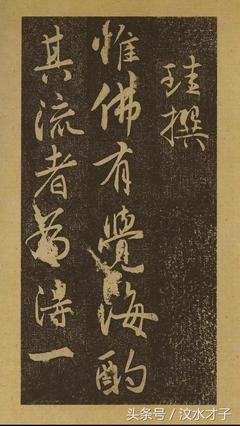 珪撰
惟佛有覺海酌
其流者為得一
头条号 / 汶水才子